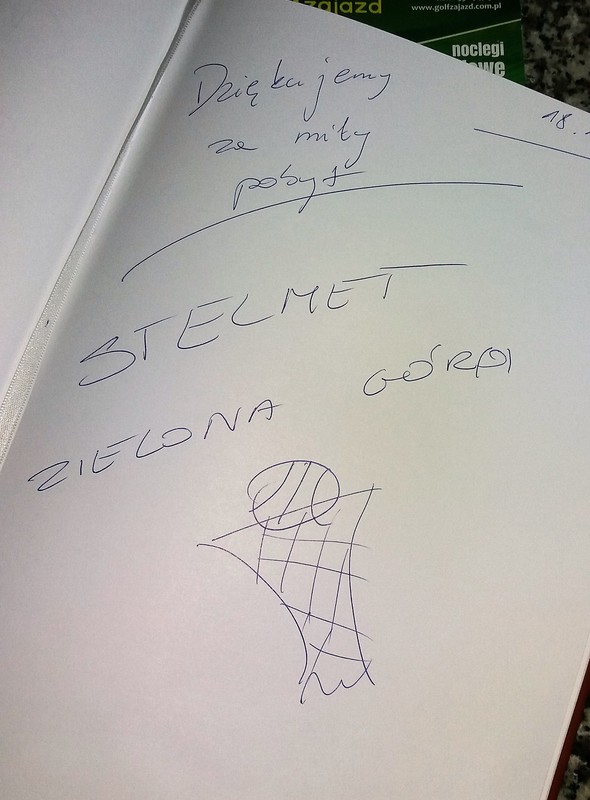 zajazd
www.golfzajazd.com.pl
noclegi
Dziękujemy
za miły
pobyt
18.
STELMET
ZIELONA GÓRA